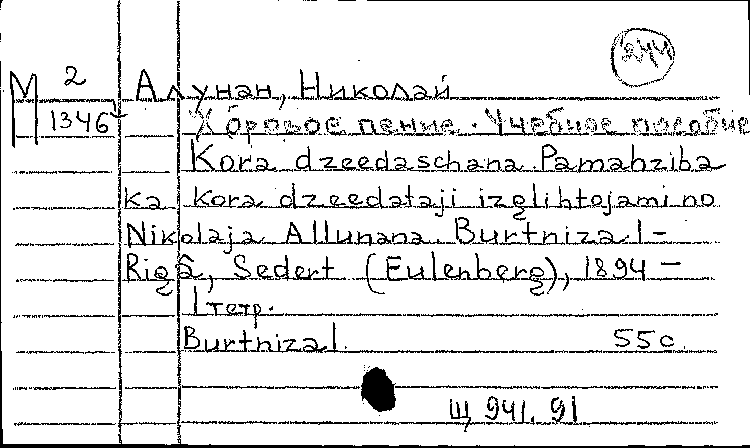 244
М 2 Алунан, Николай
1346 Хоровое пение. Учебное пособие
Kora dzeedaschana. Pamahziba
ka kora dzeedataji izglihtojami no
Nikolaja Allunana. Burtniza 1 -
Rigâ, Sedert (Eulenberg), 1894 -
1 тетр.
Burtniza 1. 55 с.
Щ 941.91